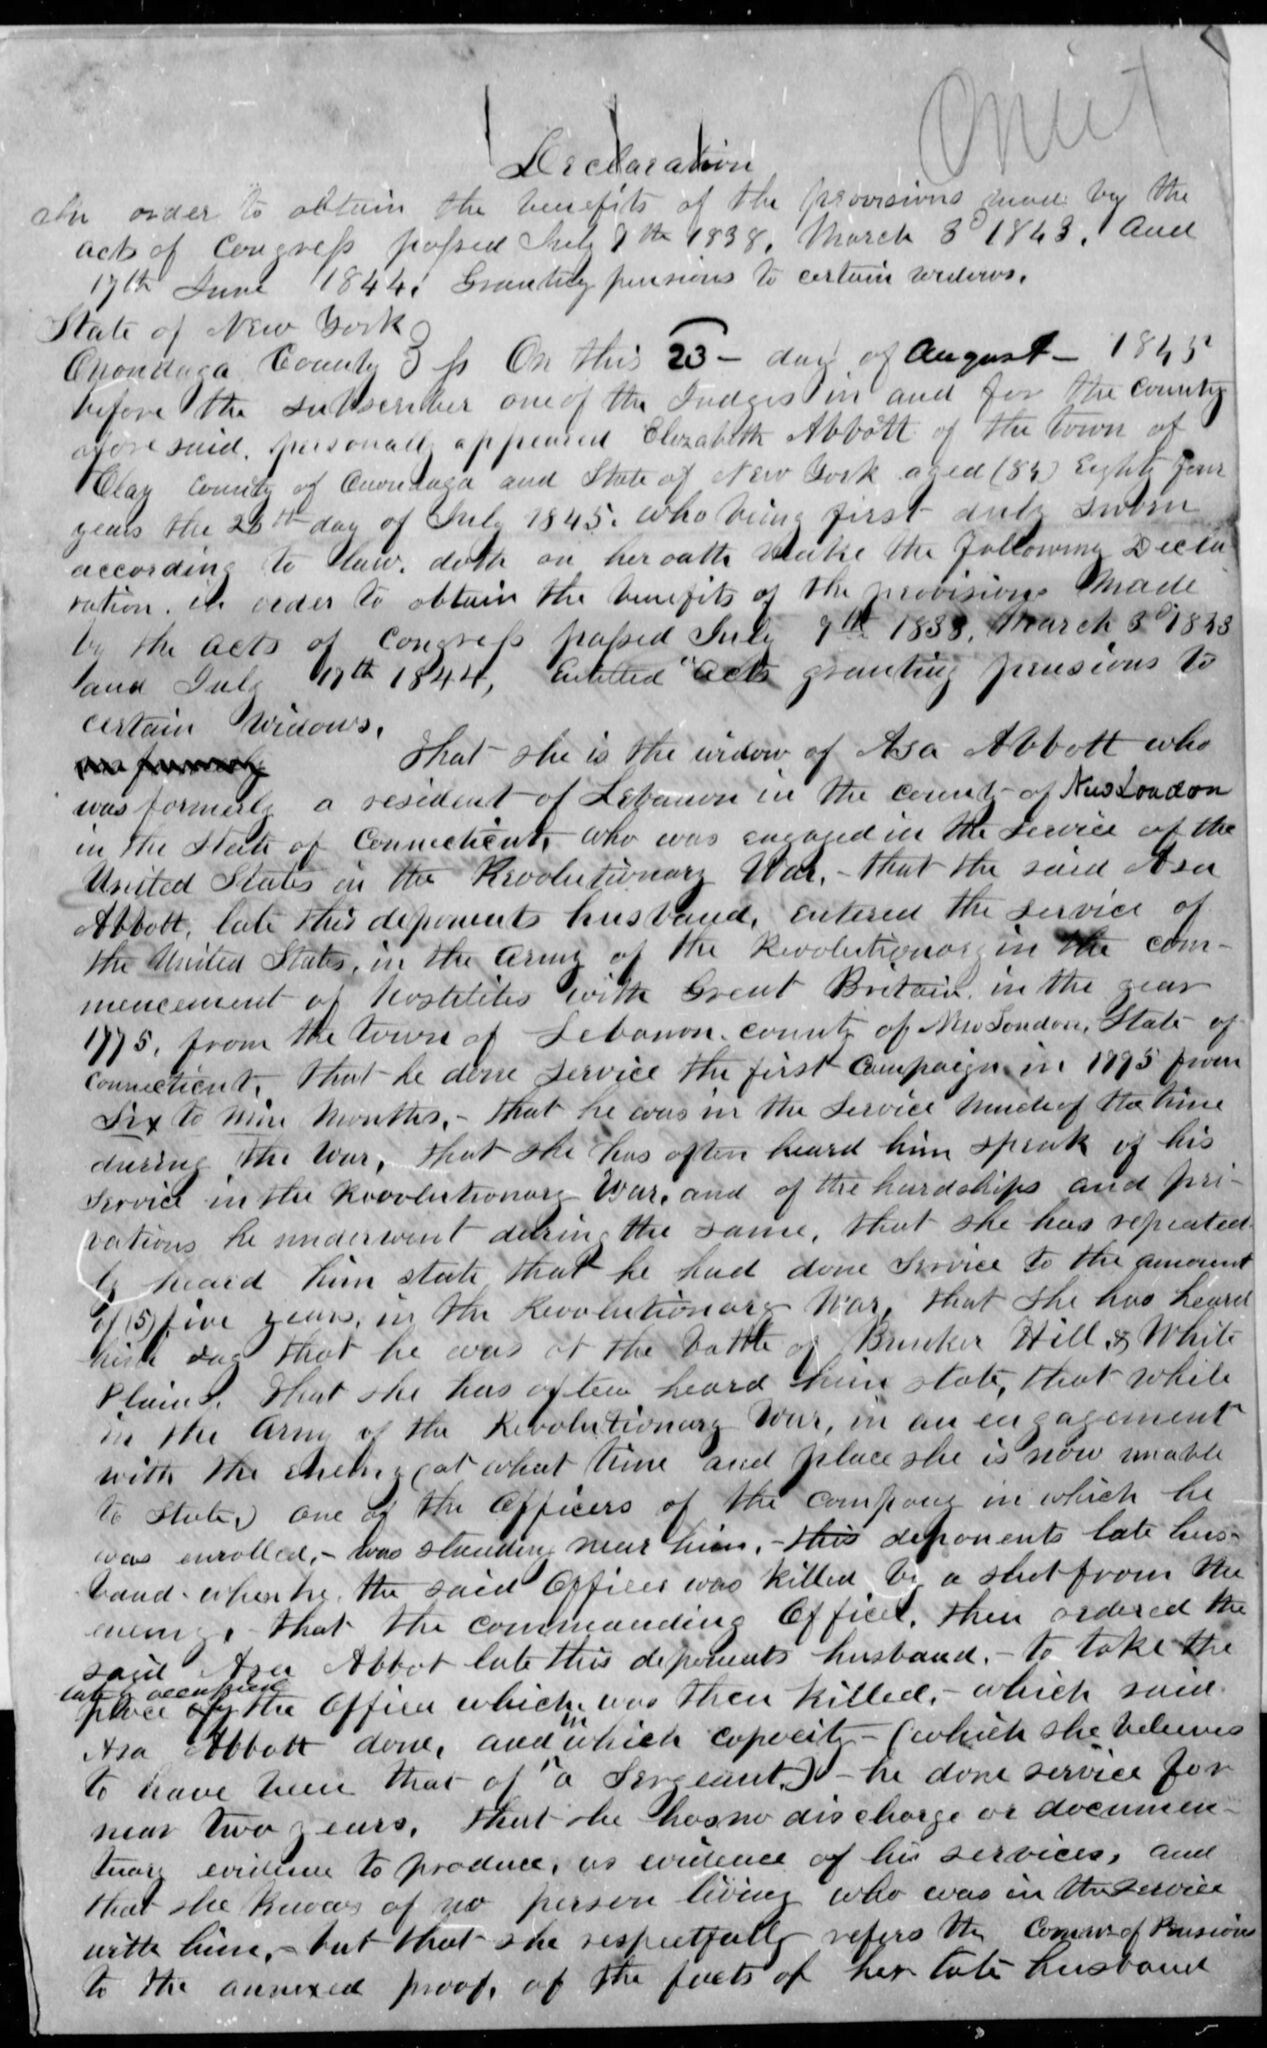 Declaration
In order to obtain the benefits of the provisions made by the
acts of Congress passed July 7th 1838, March 3d 1843, And
17th June 1844, Granting pensions to certain widows.
State of New York
Onondaga County } ss On this 23 - day of August - 1845
before the subscriber one of the Judges in and for the county
aforesaid, personally appeared Elizabeth Abbott of the town of
Clay county of Onondaga and State of New York aged (84) Eighty four
years the 25th day of July 1845. who being first duly sworn
according to law, doth on her oath make the following Decla-
ration, in order to obtain the benefits of the provisions made
by the acts of Congress passed July 7th 1838, March 3d 1843
and July 17th 1844, Entitled "Acts granting pensions to
certain Widows.
That she is the widow of Asa Abbott who
was formerly a resident of Lebanon in the county of New London
in the State of Connecticut, who was engaged in the service of the
United States in the Revolutionary War, - that the said Asa
Abbott, late this deponents husband, entered the service of
the United States, in the Army of the Revolutionary in the com-
mencement of hostilites with Great Britain in the year
1775, from the town of Lebanon county of New London, State of
Connecticut, that he done service the first Campaign in 1775 from
Six to nine months, - that he was in the service much of the time
during the war, that she has often heard him speak of his
service in the Revolutionary War, and of the hardships and pri-
vations he underwent during the same, that she has repeated-
ly heard him state that he had done service to the amount
of (5) five years, in the Revolutionary War, that she has heard
him say that he was at the battle of Bunker Hill & White
Plains. that she has often heard him state, that while
in the Army of the Revolutionary War, in an engagement
with the enemy (at what time and place she is now unable
to state,) one of the Officers of the company in which he
was enrolled, - was standing near him, - this deponents late hus-
band - when he, the said Officer was killed by a shot from the
enemy, - that the commanding Officer, then ordered the
said Asa Abbot late this deponents husband, - to take the
place late occupied by the Officer which was then killed, - which said
Asa Abbott done, and in which capacity - (which she believes
to have been that of "a Sergeant,) - he done service for
near two years, that she has no discharge or documen-
tuary evidence to produce, as evidence of his services, and
that she knows of no person living who was in the service
with him, - but that she respectfully refers the Comr. of Pensions
to the annexed proof, of the facts of her late husband